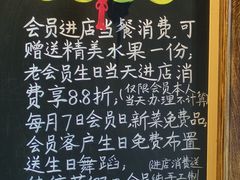 会员进店当餐消费,可
赠送精美水果一份,
老会员生日当天进店消
费享8.8折,(仅限会员本人
当天办理不计算)
每月7日会员日,新菜免费品,
会员客户生日免费布置
送生日舞蹈,(进店消费送